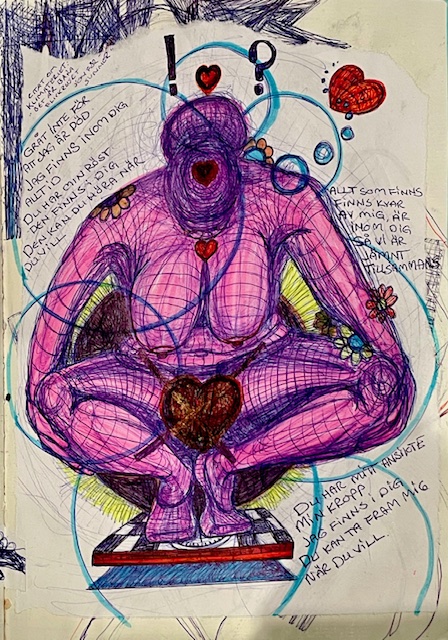 ! ?
DET ÄR BARA
GRÅT INTE FÖR
ATT JAG ÄR DÖD
JAG FINNS INOM DIG
ALLTID
DU HAR MIN RÖST
DEN FINNS I DIG
DEN KAN DU HÖRA NÄR
DU VILL
ALLT SOM FINNS
FINNS KVAR
AV MIG, ÄR
INOM DIG
SÅ VI ÄR
JÄMNT
TILLSAMMANS
DU HAR MITT ANSIKTE
MIN KROPP.
JAG FINNS I DIG
DU KAN TA FRAM MIG
NÄR DU VILL.